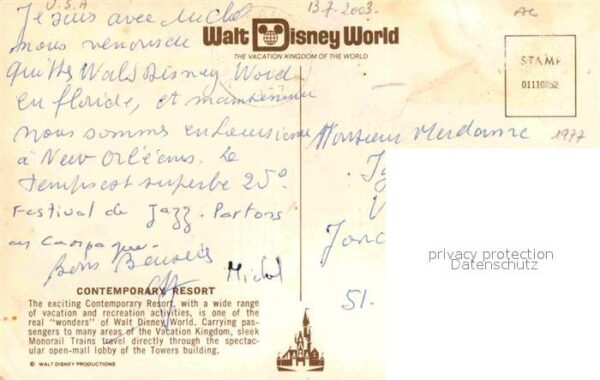 U.S.A
13.7.2003.
AC
Je suis avec Michel
nous venons de
quitter Wald Disney Word
en floride, et maintenant
nous sommes en Louisiane
à New Orléans. Le
temps est superbe 25°
Festival de Jazz. Partons
en Campagne.
Bons Baisers
Michel
Walt Disney World
THE VACATION KINGDOM OF THE WORLD
STAMP
01110252
Monsieur
1977
51.
privacy protection
Datenschutz
CONTEMPORARY RESORT
The exciting Contemporary Resort, with a wide range
of vacation and recreation activities, is one of the
real "wonders" of Walt Disney World. Carrying pas-
sengers to many areas of the Vacation Kingdom, sleek
Monorail Trains travel directly through the spectac-
ular open-mall lobby of the Towers building.
© WALT DISNEY PRODUCTIONS